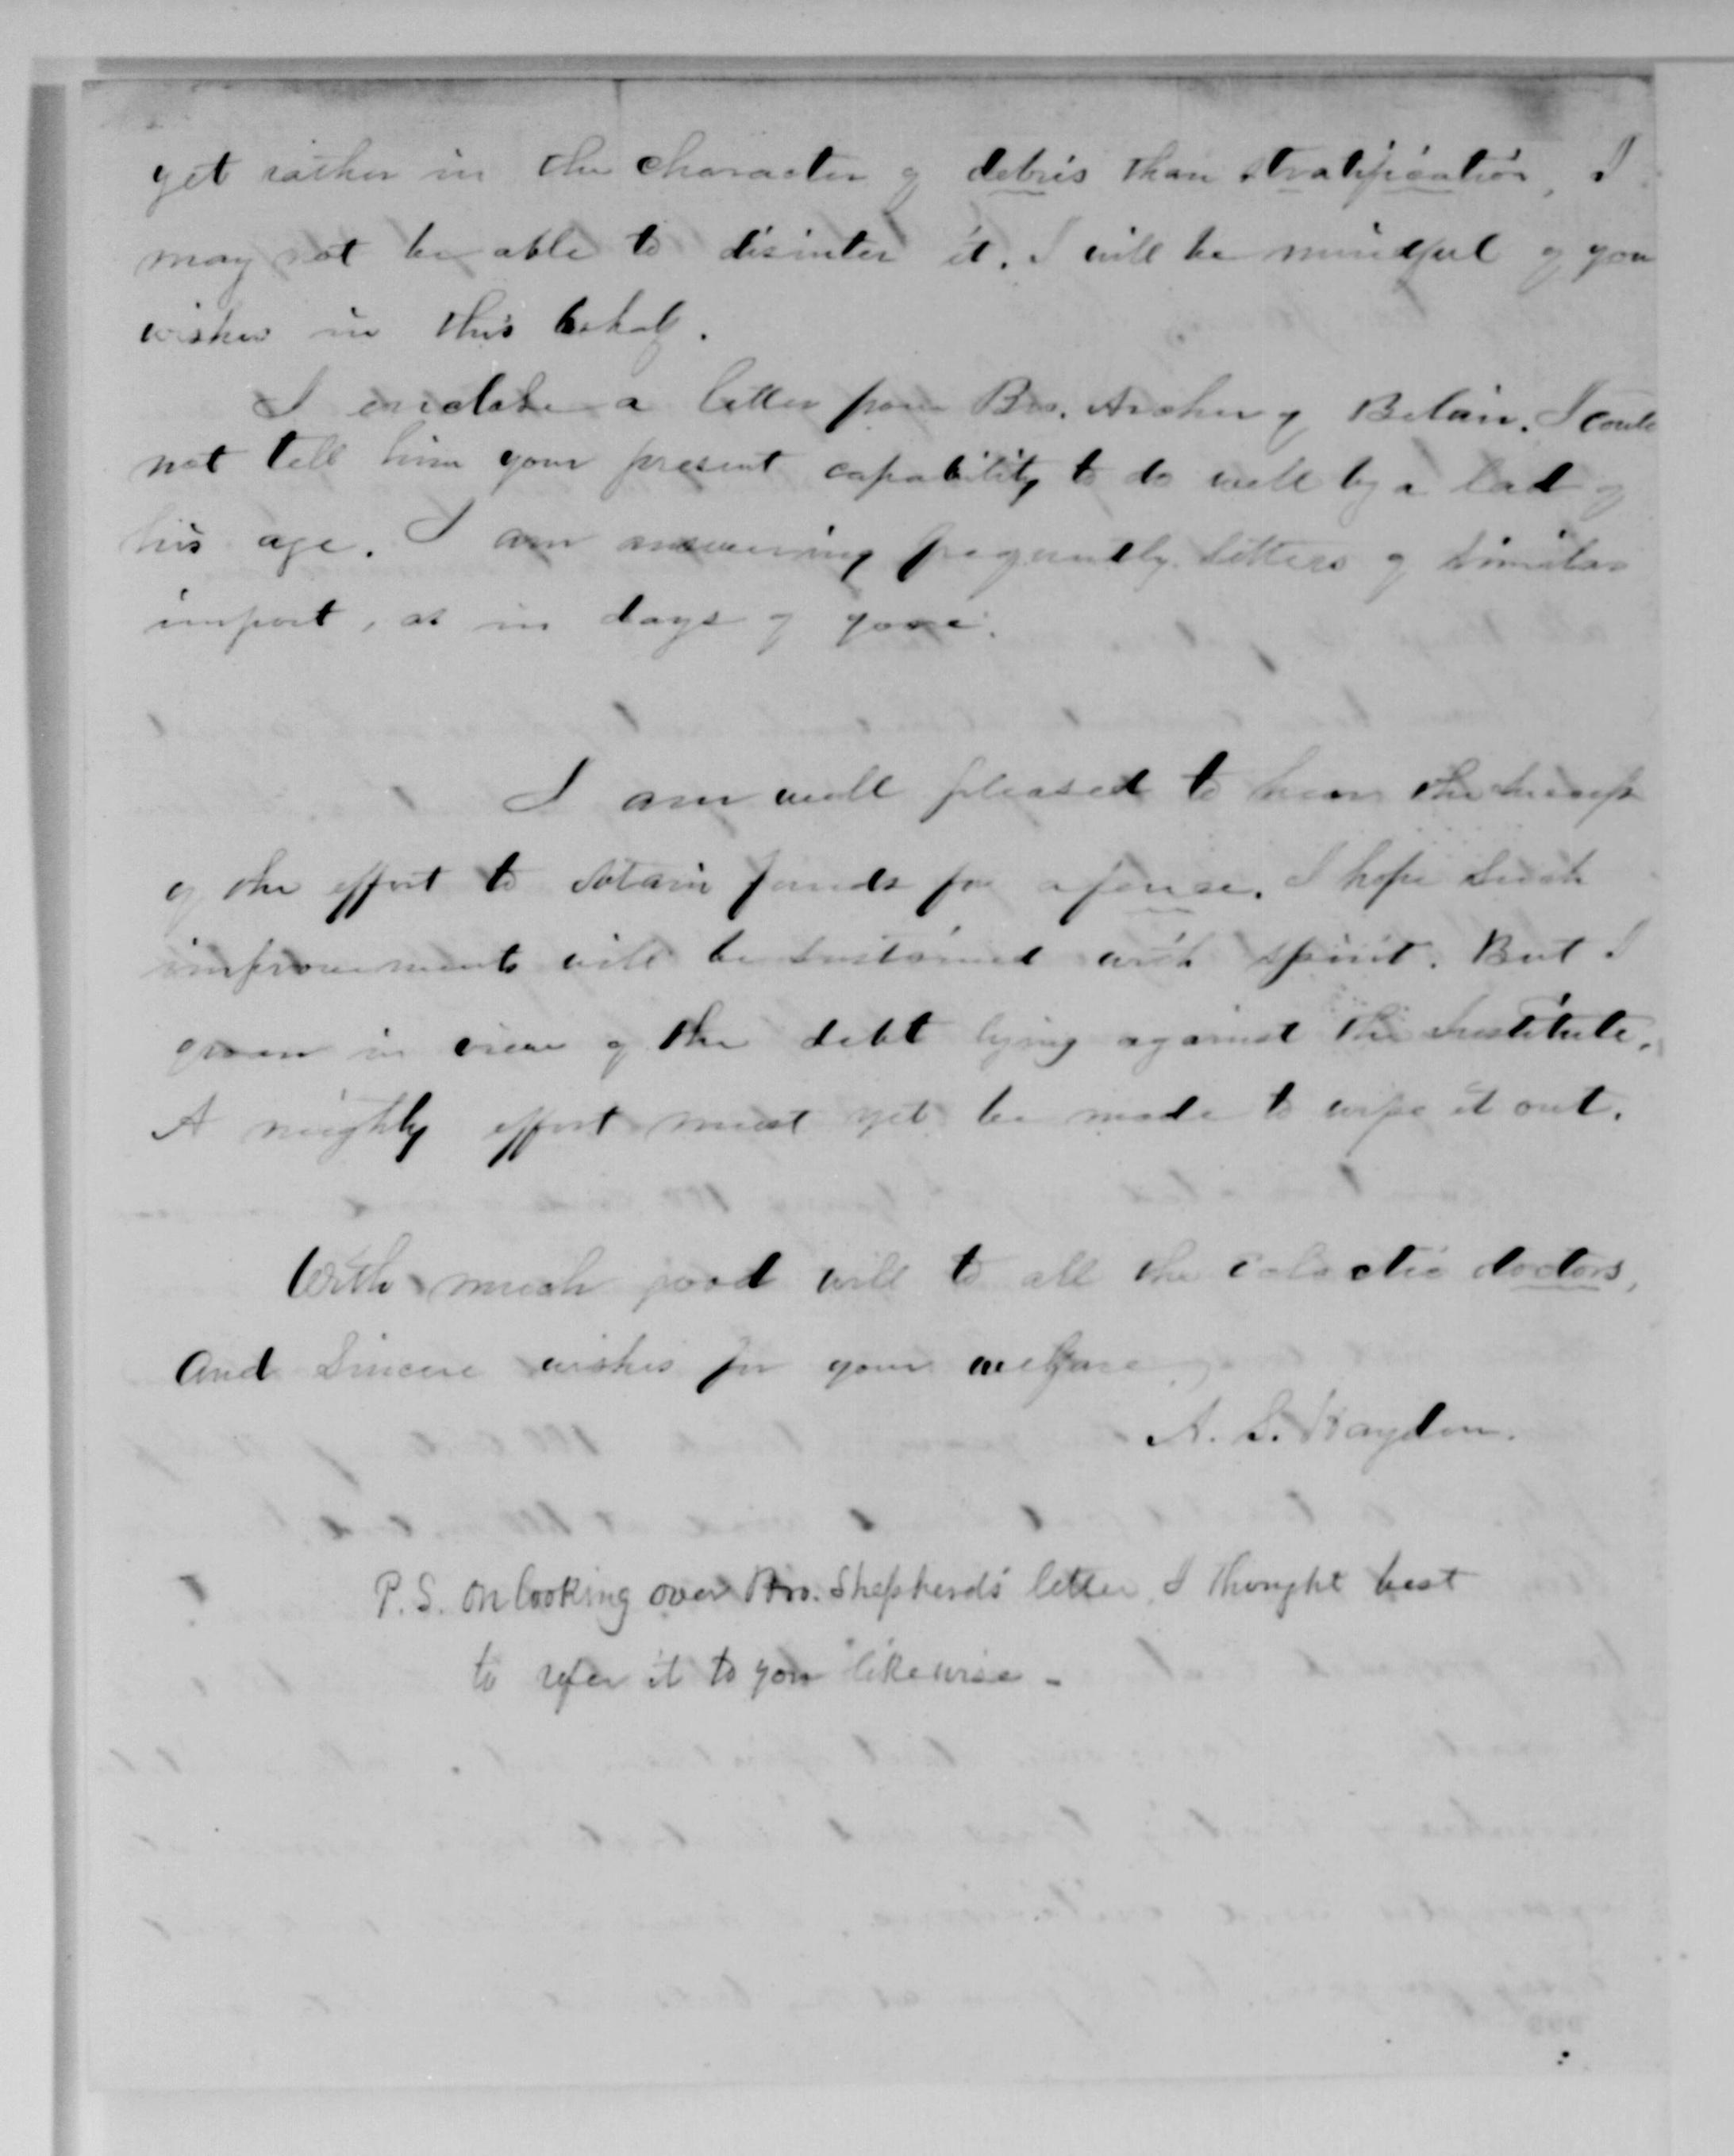 yet rather in the character of debris than stratification, I
may not be able to disinter it. I will be mindful of you
wishes in this behalf.
I enclose a letter from Bro. Archer of Belair. I could
not tell him your present capability to do well by a lad of
his age. I am answering frequently letters of similar
import, as in days of yore.
I am well pleased to hear the
of the effort to obtain funds for a fence. I hope such
improvements will be sustained with spirit. But I
groan in view of the debt lying against the Institute.
A mighty effort must yet be made to wipe it out.
With much good will to all the eclectic doctors,
And Sincere wishes for your welfare
A. S. Hayden.
P.S. On looking over Bro. Shepherd's letter, I thought best
to refer it to you likewise -